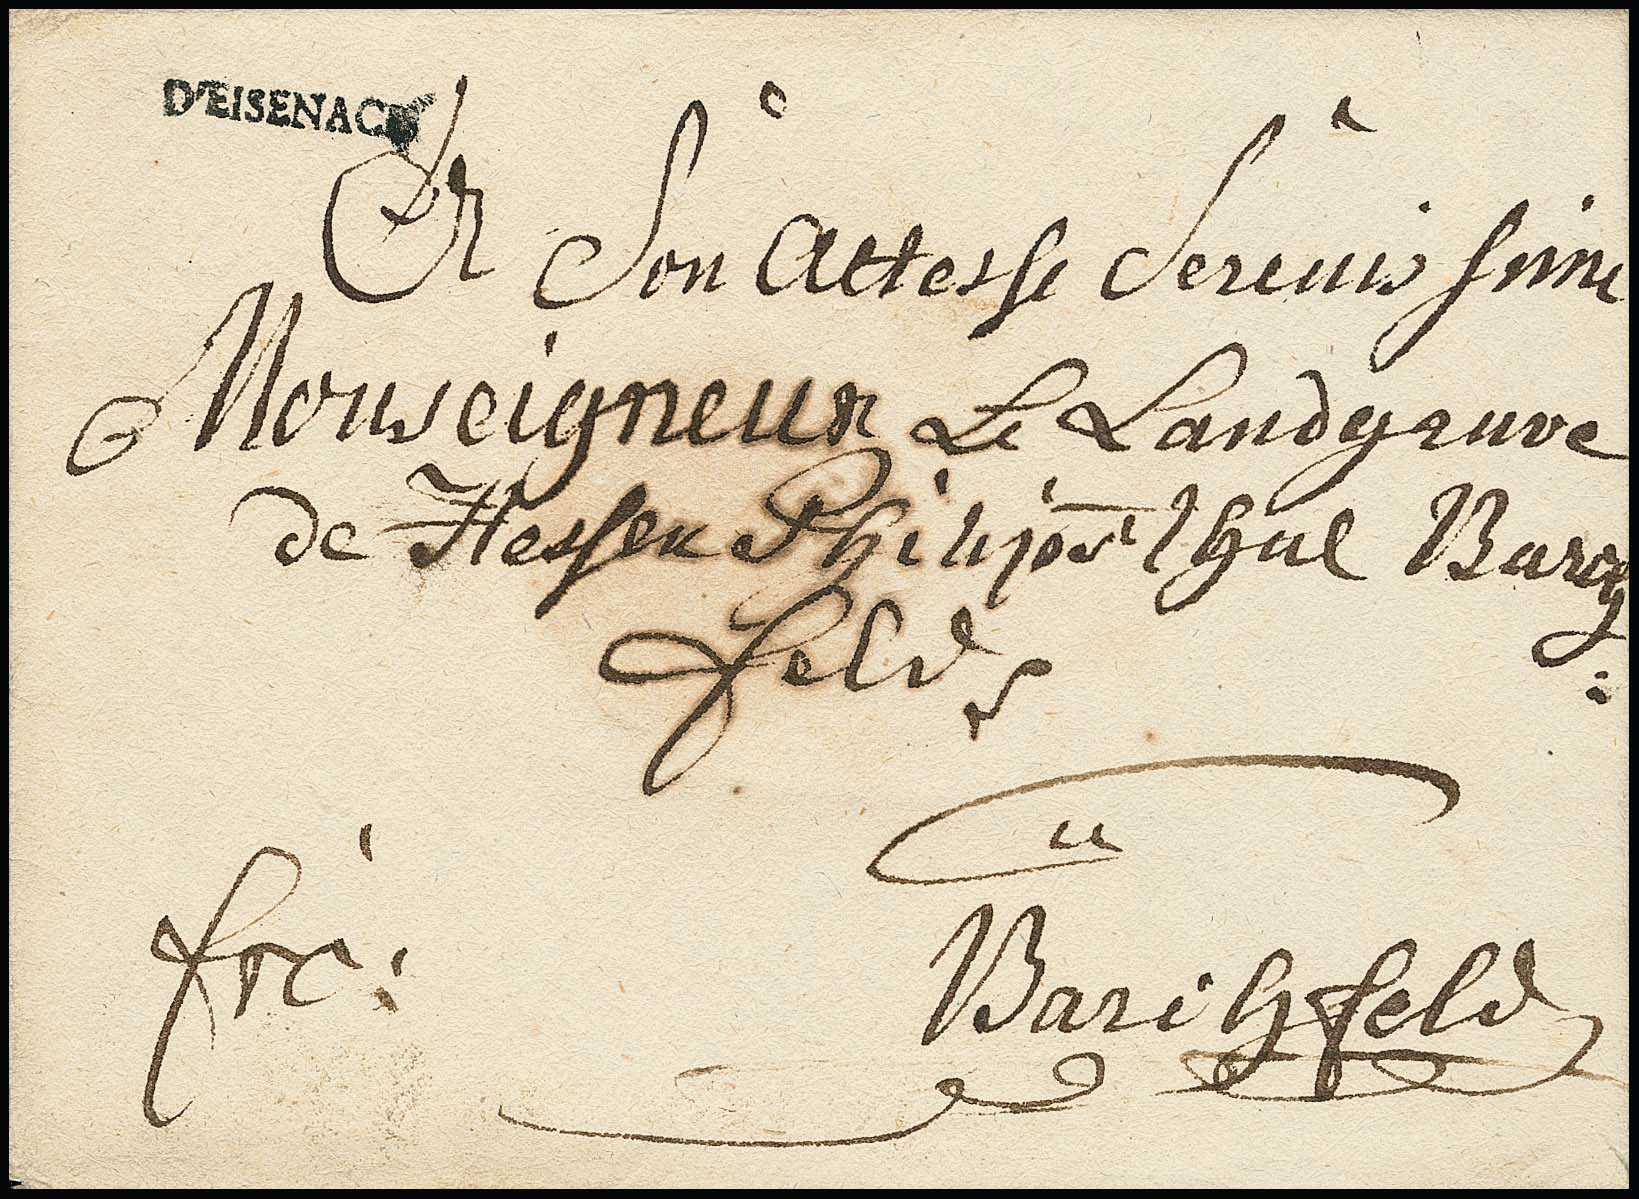 D'EISENACH
A Son Altesse Serenissime
Monseigneur Le Landgrave
de Hessen Philipsthal Barch
feld
à
Barchfeld
frc: